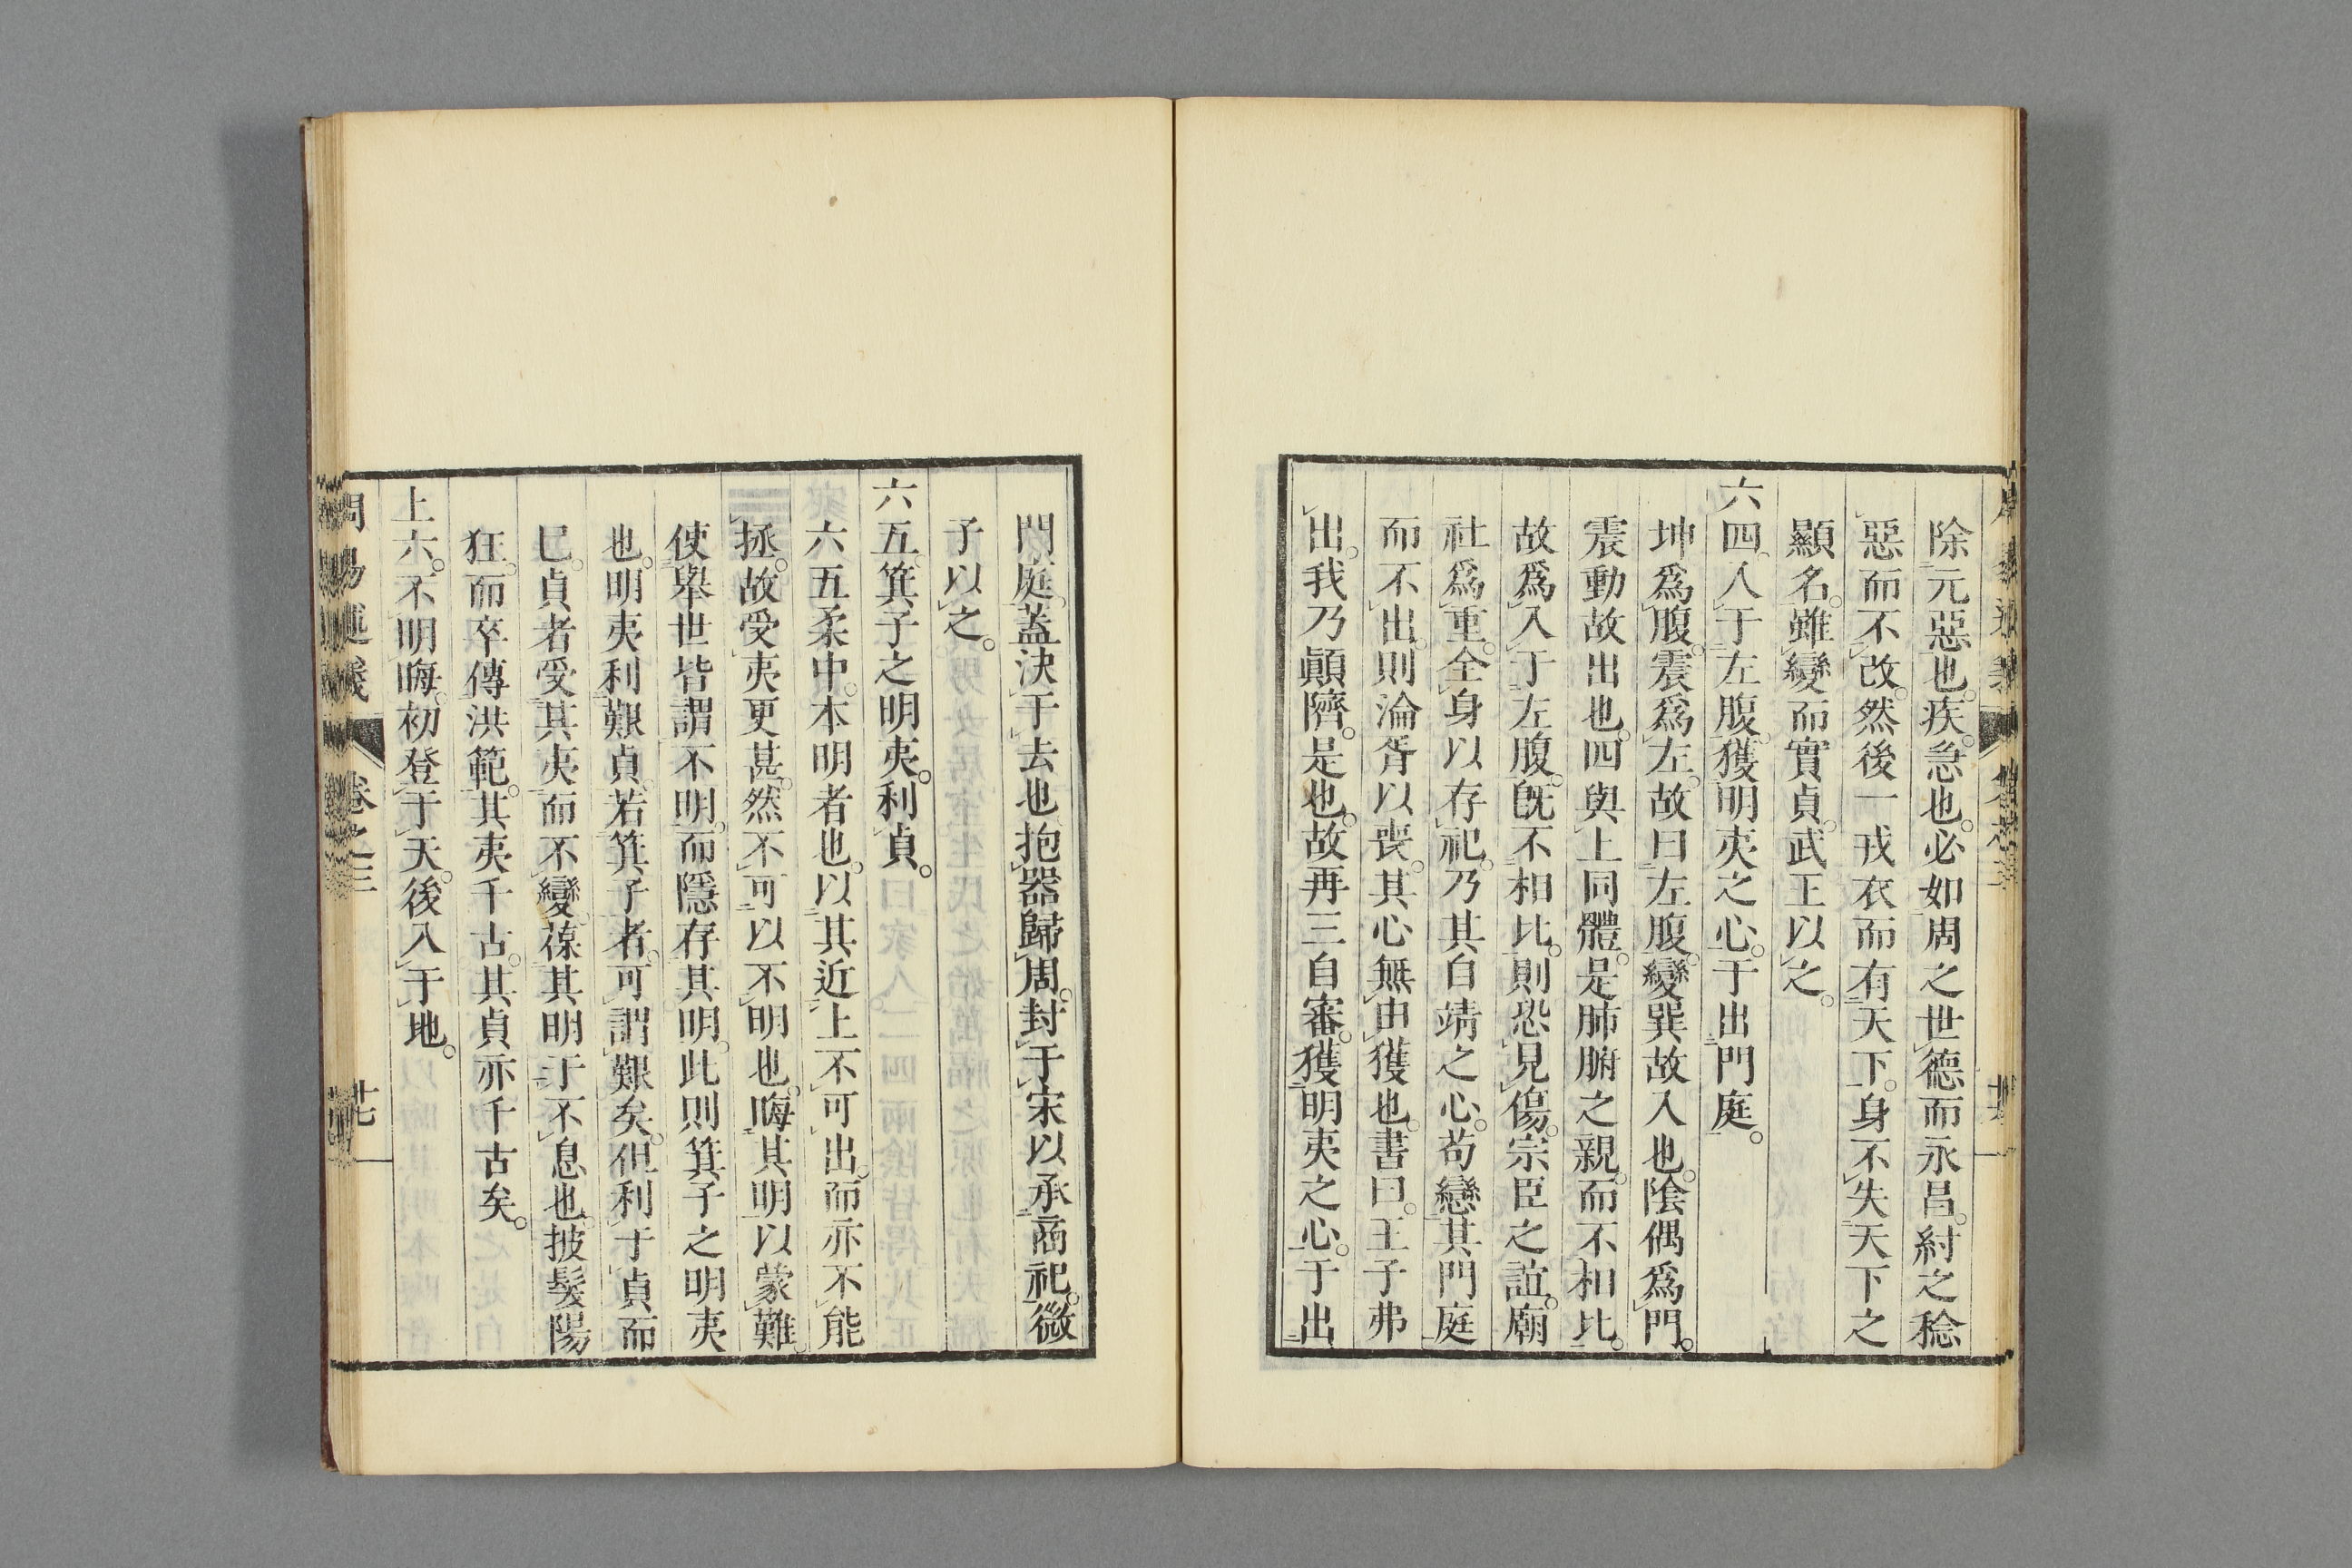 除元惡也。疾。急也。必如周之世德而永昌。紂之稔
惡而不改。然後一戎衣而有天下。身不失天下之
顯名。雖變而實貞。武王以之。
六四。入于左腹。獲明夷之心。于出門庭。
坤爲腹。震爲左。故曰左腹。變巽故入也。陰偶爲門。
震動故出也。四與上同體。是肺腑之親。而不相比。
故爲入于左腹。旣不相比。則恐見傷。宗臣之誼。廟
社爲重。全身以存祀。乃其自靖之心。苟戀其門庭
而不出。則淪胥以喪。其心無由獲也。書曰。王子弗
出。我乃顚隮。是也。故再三自審。獲明夷之心。于出
門庭。蓋決于去也。抱器歸周。封于宋以承商祀。微
子以之。
六五。箕子之明夷。利貞。
六五柔中。本明者也。以其近上不可出。而亦不能
拯。故受夷更甚。然不可以不明也。晦其明以蒙難。
使舉世皆謂不明。而隱存其明。此則箕子之明夷
也。明夷利艱貞。若箕子者。可謂艱矣。但利于貞而
已。貞者受其夷而不變。葆其明于不息也。披髮陽
狂。而卒傳洪範。其夷千古。其貞亦千古矣。
上六。不明晦。初登于天。後入于地。
周易運義 卷之三 廿七